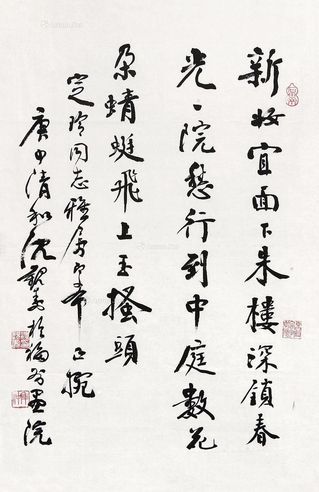 新妆宜面下朱樓深鎖春
光一院愁行到中庭數花
朵蜻蜓飛上玉搔頭
定珍同志雅属即希正腕
庚申清和沈觐寿於福州画院